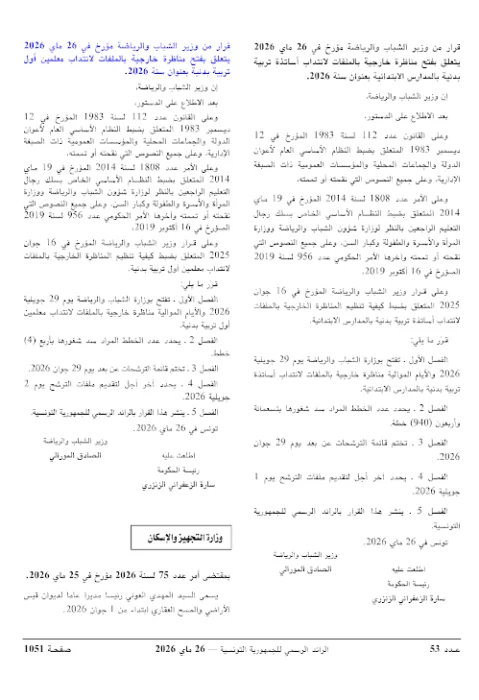 قرار من وزير الشباب والرياضة مؤرخ في 26 ماي 2026
يتعلق بفتح مناظرة خارجية بالملفات لانتداب أساتذة تربية
بدنية بالمدارس الابتدائية بعنوان سنة 2026.
إن وزير الشباب والرياضة،
بعد الاطلاع على الدستور،
وعلى القانون عدد 112 لسنة 1983 المؤرخ في 12
ديسمبر 1983 المتعلق بضبط النظام الأساسي العام لأعوان
الدولة والجماعات المحلية والمؤسسات العمومية ذات الصبغة
الإدارية، وعلى جميع النصوص التي نقحته أو تممته،
وعلى الأمر عدد 1808 لسنة 2014 المؤرخ في 19 ماي
2014 المتعلق بضبط النظام الأساسي الخاص بسلك رجال
التعليم الراجعين بالنظر لوزارة شؤون الشباب والرياضة ووزارة
المرأة والأسرة والطفولة وكبار السن، وعلى جميع النصوص التي
نقحته أو تممته وآخرها الأمر الحكومي عدد 956 لسنة 2019
المؤرخ في 16 أكتوبر 2019،
وعلى قرار وزير الشباب والرياضة المؤرخ في 16 جوان
2025 المتعلق بضبط كيفية تنظيم المناظرة الخارجية بالملفات
لانتداب أساتذة تربية بدنية بالمدارس الابتدائية.
قرر ما يلي:
الفصل الأول ـ تفتح بوزارة الشباب والرياضة يوم 29 جويلية
2026 والأيام الموالية مناظرة خارجية بالملفات لانتداب أساتذة
تربية بدنية بالمدارس الابتدائية.
الفصل 2 ـ يحدد عدد الخطط المراد سد شغورها بتسعمائة
وأربعون (940) خطة.
الفصل 3 ـ تختم قائمة الترشحات عن بعد يوم 29 جوان
2026.
الفصل 4 ـ يحدد آخر أجل لتقديم ملفات الترشح يوم 1
جويلية 2026.
الفصل 5 ـ ينشر هذا القرار بالرائد الرسمي للجمهورية
التونسية.
تونس في 26 ماي 2026.
وزير الشباب والرياضة
الصادق المورالي
اطلعت عليه
رئيسة الحكومة
سارة الزعفراني الزنزري
قرار من وزير الشباب والرياضة مؤرخ في 26 ماي 2026
يتعلق بفتح مناظرة خارجية بالملفات لانتداب معلمين أول
تربية بدنية بعنوان سنة 2026.
إن وزير الشباب والرياضة،
بعد الاطلاع على الدستور،
وعلى القانون عدد 112 لسنة 1983 المؤرخ في 12
ديسمبر 1983 المتعلق بضبط النظام الأساسي العام لأعوان
الدولة والجماعات المحلية والمؤسسات العمومية ذات الصبغة
الإدارية، وعلى جميع النصوص التي نقحته أو تممته،
وعلى الأمر عدد 1808 لسنة 2014 المؤرخ في 19 ماي
2014 المتعلق بضبط النظام الأساسي الخاص بسلك رجال
التعليم الراجعين بالنظر لوزارة شؤون الشباب والرياضة ووزارة
المرأة والأسرة والطفولة وكبار السن، وعلى جميع النصوص التي
نقحته أو تممته وآخرها الأمر الحكومي عدد 956 لسنة 2019
المؤرخ في 16 أكتوبر 2019،
وعلى قرار وزير الشباب والرياضة المؤرخ في 16 جوان
2025 المتعلق بضبط كيفية تنظيم المناظرة الخارجية بالملفات
لانتداب معلمين أول تربية بدنية.
قرر ما يلي:
الفصل الأول ـ تفتح بوزارة الشباب والرياضة يوم 29 جويلية
2026 والأيام الموالية مناظرة خارجية بالملفات لانتداب معلمين
أول تربية بدنية.
الفصل 2 ـ يحدد عدد الخطط المراد سد شغورها بأربع (4)
خطط.
الفصل 3 ـ تختم قائمة الترشحات عن بعد يوم 29 جوان 2026.
الفصل 4 ـ يحدد آخر أجل لتقديم ملفات الترشح يوم 2
جويلية 2026.
الفصل 5 ـ ينشر هذا القرار بالرائد الرسمي للجمهورية التونسية.
تونس في 26 ماي 2026.
وزير الشباب والرياضة
الصادق المورالي
اطلعت عليه
رئيسة الحكومة
سارة الزعفراني الزنزري
وزارة التجهيز والإسكان
بمقتضى أمر عدد 75 لسنة 2026 مؤرخ في 25 ماي 2026.
يسمى السيد المهدي العوني رئيسا مديرا عاما لديوان قيس
الأراضي والمسح العقاري ابتداء من 1 جوان 2026.
عـدد 53
الرائد الرسمي للجمهورية التونسية — 26 ماي 2026
صفحـة 1051